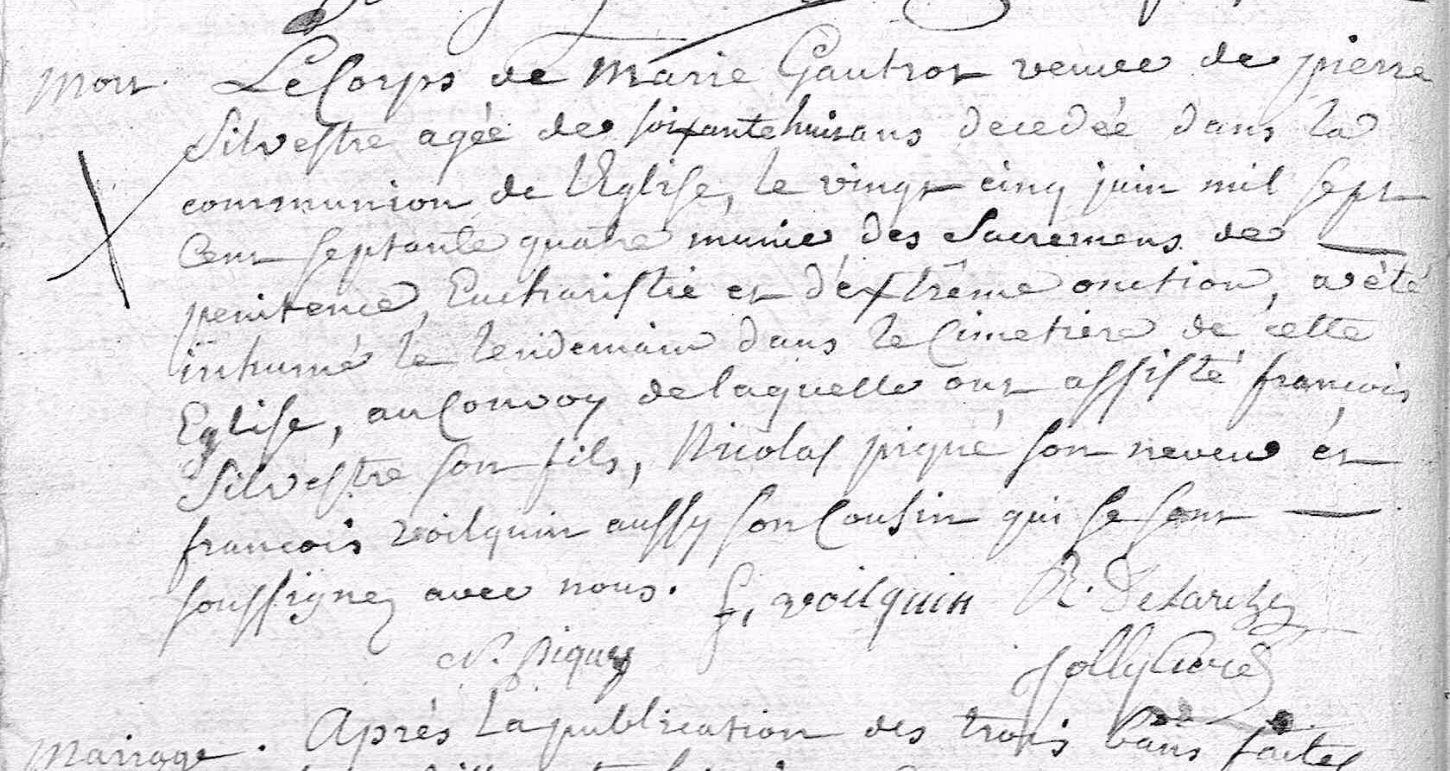 mort. Le Corps de Marie Gautrot veuve de pierre
Silvestre agée de soixante huit ans decedée dans la
communion de l'Eglise, le vingt cinq juin mil sept
Cent septante quatre munie des Sacremens de
penitence, Eucharistie et d'extrême onction, a été
inhumé le lendemain dans le Cimetiere de cette
Eglise, au Convoy de laquelle ont assisté françois
Silvestre son fils, Nicolas piqué son neveu et
françois voilquin aussy son Cousin qui se sont
soussignez avec nous. f, voilquin
N. piquez Jolly Curé
Mariage. Après la publication des trois bans faites